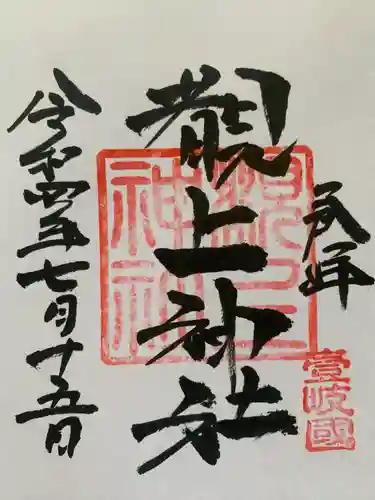 奉拝
壹岐國
覩上神社
覩上
神社
令和四年七月十五日